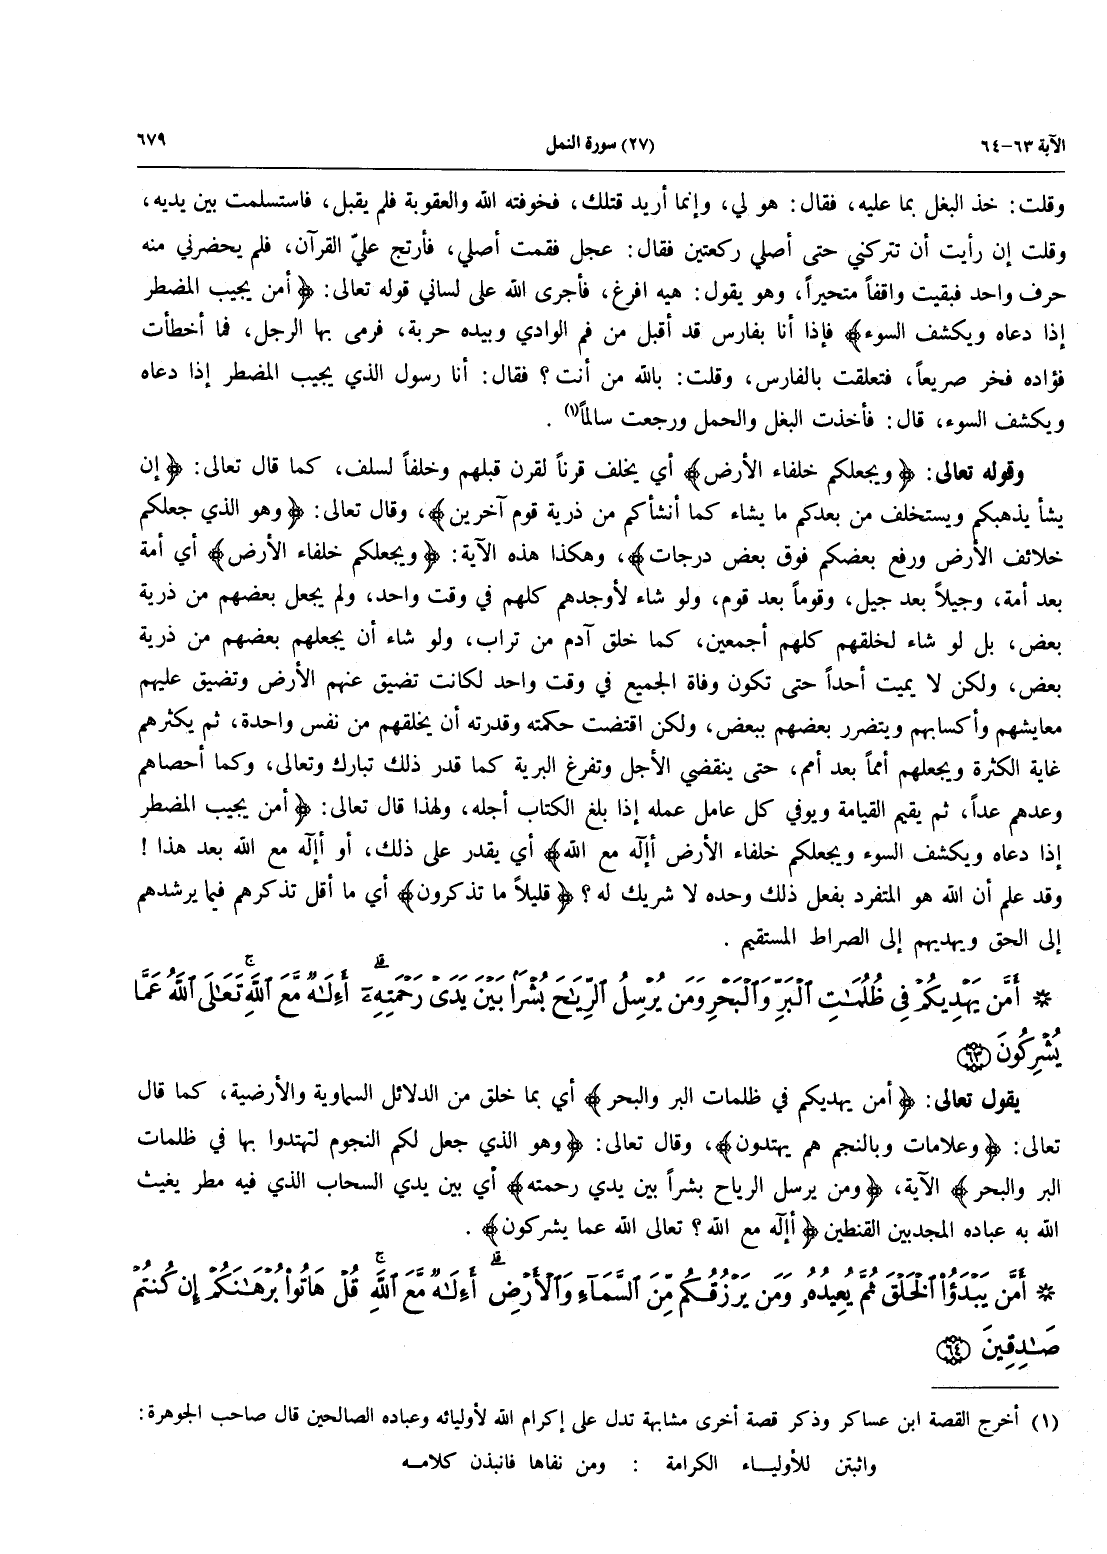 الآية ٦٣-٦٤ (٢٧) سورة النمل ٦٧٩
وقلت: خذ البغل بما عليه، فقال: هو لي، وإنما أريد قتلك، فخوفته الله والعقوبة فلم يقبل، فاستسلمت بين يديه،
وقلت إن رأيت أن تتركني حتى أصلي ركعتين فقال: عجل فقمت أصلي، فأرتج عليّ القرآن، فلم يحضرني منه
حرف واحد فبقيت واقفاً متحيراً، وهو يقول: هيه افرغ، فأجرى الله على لساني قوله تعالى: ﴿أمن يجيب المضطر
إذا دعاه ويكشف السوء﴾ فإذا أنا بفارس قد أقبل من فم الوادي وبيده حربة، فرمى بها الرجل، فما أخطأت
فؤاده فخر صريعاً، فتعلقت بالفارس، وقلت: بالله من أنت؟ فقال: أنا رسول الذي يجيب المضطر إذا دعاه
ويكشف السوء، قال: فأخذت البغل والحمل ورجعت سالماً(١).
وقوله تعالى: ﴿ويجعلكم خلفاء الأرض﴾ أي يخلف قرناً لقرن قبلهم وخلفاً لسلف، كما قال تعالى: ﴿إن
يشأ يذهبكم ويستخلف من بعدكم ما يشاء كما أنشأكم من ذرية قوم آخرين﴾، وقال تعالى: ﴿وهو الذي جعلكم
خلائف الأرض ورفع بعضكم فوق بعض درجات﴾، وهكذا هذه الآية: ﴿ويجعلكم خلفاء الأرض﴾ أي أمة
بعد أمة، وجيلاً بعد جيل، وقوماً بعد قوم، ولو شاء لأوجدهم كلهم في وقت واحد، ولم يجعل بعضهم من ذرية
بعض، بل لو شاء لخلقهم كلهم أجمعين، كما خلق آدم من تراب، ولو شاء أن يجعلهم بعضهم من ذرية
بعض، ولكن لا يميت أحداً حتى تكون وفاة الجميع في وقت واحد لكانت تضيق عنهم الأرض وتضيق عليهم
معايشهم وأكسابهم ويتضرر بعضهم ببعض، ولكن اقتضت حكمته وقدرته أن يخلقهم من نفس واحدة، ثم يكثرهم
غاية الكثرة ويجعلهم أمماً بعد أمم، حتى ينقضي الأجل وتفرغ البرية كما قدر ذلك تبارك وتعالى، وكما أحصاهم
وعدهم عداً، ثم يقيم القيامة ويوفي كل عامل عمله إذا بلغ الكتاب أجله، ولهذا قال تعالى: ﴿أمن يجيب المضطر
إذا دعاه ويكشف السوء ويجعلكم خلفاء الأرض أإله مع الله﴾ أي يقدر على ذلك، أو أإله مع الله بعد هذا!
وقد علم أن الله هو المتفرد بفعل ذلك وحده لا شريك له؟ ﴿قليلاً ما تذكرون﴾ أي ما أقل تذكرهم فيما يرشدهم
إلى الحق ويهديهم إلى الصراط المستقيم.
* أَمَّن يَهْدِيكُمْ فِى ظُلُمَـٰتِ ٱلْبَرِّ وَٱلْبَحْرِ وَمَن يُرْسِلُ ٱلرِّيَـٰحَ بُشْرًۢا بَيْنَ يَدَىْ رَحْمَتِهِۦٓ ۗ أَءِلَـٰهٌ مَّعَ ٱللَّهِ ۚ تَعَـٰلَى ٱللَّهُ عَمَّا
يُشْرِكُونَ ٦٣
يقول تعالى: ﴿أمن يهديكم في ظلمات البر والبحر﴾ أي بما خلق من الدلائل السماوية والأرضية، كما قال
تعالى: ﴿وعلامات وبالنجم هم يهتدون﴾، وقال تعالى: ﴿وهو الذي جعل لكم النجوم لتهتدوا بها في ظلمات
البر والبحر﴾ الآية، ﴿ومن يرسل الرياح بشراً بين يدي رحمته﴾ أي بين يدي السحاب الذي فيه مطر يغيث
الله به عباده المجدبين القنطين ﴿أإله مع الله؟ تعالى الله عما يشركون﴾.
* أَمَّن يَبْدَؤُا۟ ٱلْخَلْقَ ثُمَّ يُعِيدُهُۥ وَمَن يَرْزُقُكُم مِّنَ ٱلسَّمَآءِ وَٱلْأَرْضِ ۗ أَءِلَـٰهٌ مَّعَ ٱللَّهِ ۚ قُلْ هَاتُوا۟ بُرْهَـٰنَكُمْ إِن كُنتُمْ
صَـٰدِقِينَ ٦٤
(١) أخرج القصة ابن عساكر وذكر قصة أخرى مشابهة تدل على إكرام الله لأوليائه وعباده الصالحين قال صاحب الجوهرة:
واثبتن للأوليـــاء الكرامة : ومن نفاها فانبذن كلامـــه